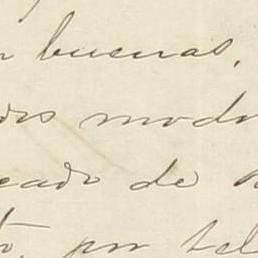 buenas,
dos modo
cado de
to, por tel